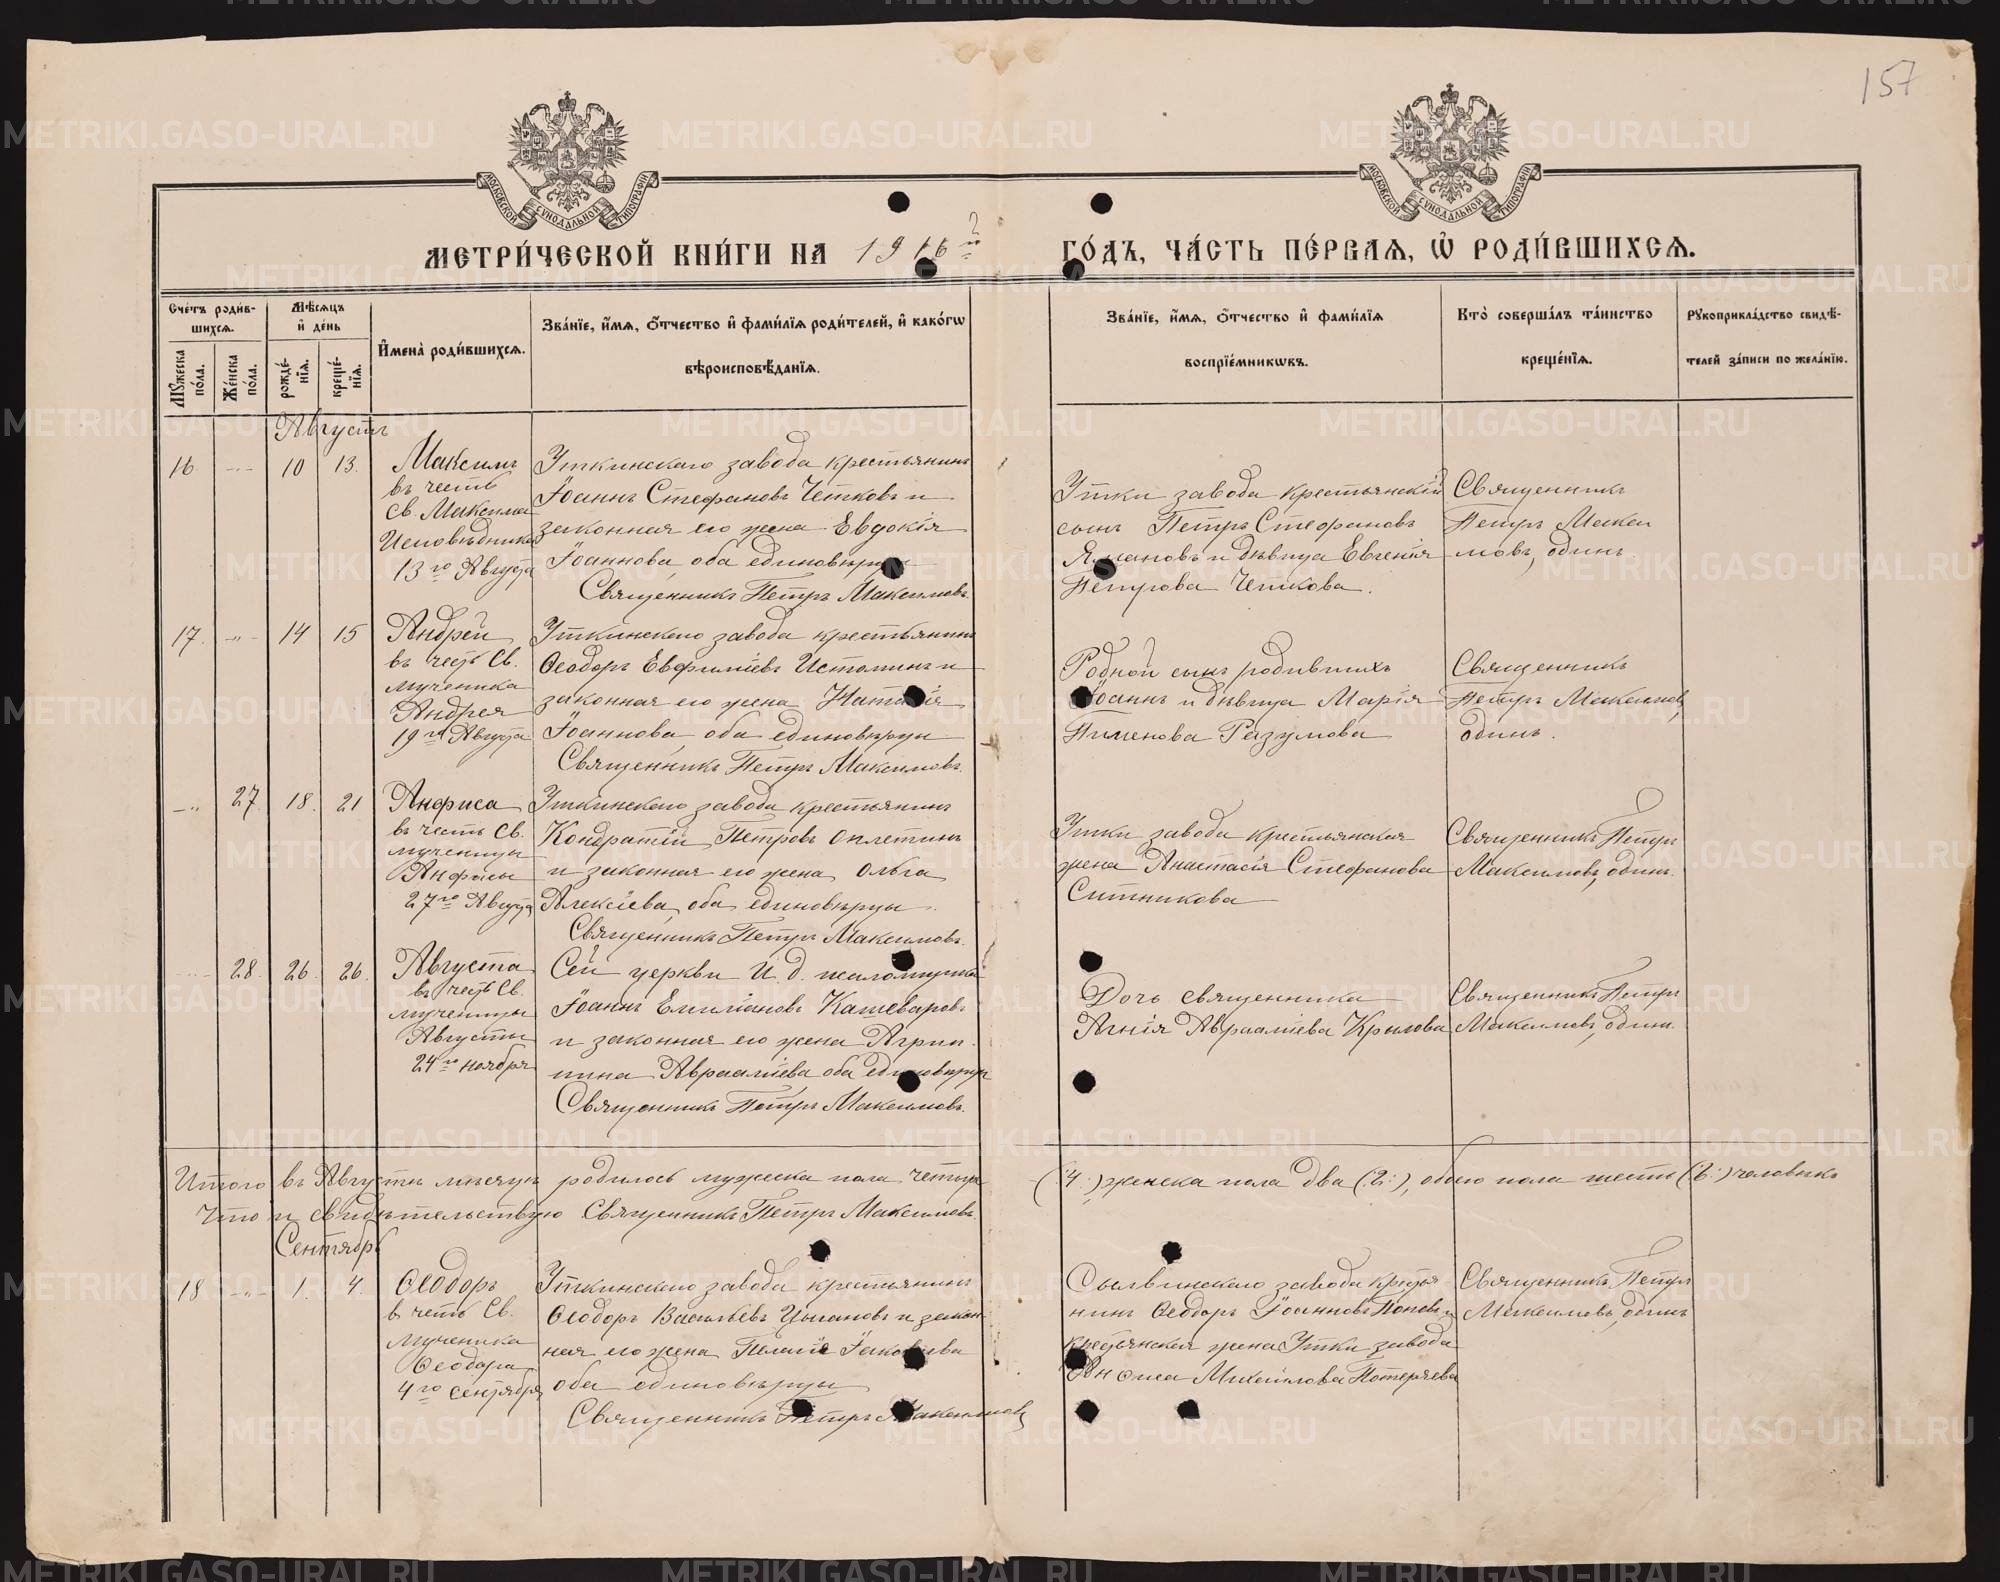 157
МОСКОВСКОЙ СѴНОДАЛЬНОЙ ТИПОГРАФІИ
МОСКОВСКОЙ СѴНОДАЛЬНОЙ ТИПОГРАФІИ
МЕТРИ́ЧЕСКОЙ КНИ́ГИ НА 1916 го ГО́ДЪ, ЧА́СТЬ ПЕ́РВАЯ, Ѡ РОДИ́ВШИХСЯ.
Сче́тъ роди́вшихся.
Мѣ́сяцъ и҆ де́нь
И҆мена̀ роди́вшихся.
Зва́нїе, и҆́мя, ѻ҆́тчество и҆ фами́лїя роди́телей, и҆ како́гѡ вѣроисповѣ́данїя.
Зва́нїе, и҆́мя, ѻ҆́тчество и҆ фами́лїя воспрїе́мникѡвъ.
Кто̀ соверша́лъ та́инство креще́нїя.
Рꙋкоприкла́дство свидѣ́телей за́писи по жела́нїю.
Мꙋ́жеска по́ла.
Же́нска по́ла.
рожде́нїя.
креще́нїя.
Августъ
16. -"- 10 13.
Максимъ
въ честь
Св. Максима
Исповѣдника
13го Августа
Уткинскаго завода крестьянинъ
Іоаннъ Стефановъ Четковъ и
законная его жена Евдокія
Іоаннова, оба единовѣрцы
Священникъ Петръ Максимовъ.
Утки завода крестьянскій
сынъ Петръ Стефановъ
и дѣвица Евгенія
Петрова Четкова.
Священникъ
Петръ Макси
мовъ, одинъ.
17. -"- 14 15
Андрей
въ честь Св.
мученика
Андрея
19го Августа
Уткинскаго завода крестьянинъ
Ѳеодоръ Евфиміевъ Истоминъ и
законная его жена Наталія
Іоаннова оба единовѣрцы
Священникъ Петръ Максимовъ.
Родной сынъ родившихъ
Іоаннъ и дѣвица Марія
Пименова Разумова
Священникъ
Петръ Максимовъ,
одинъ.
-"- 27. 18. 21
Анфиса
въ честь Св.
мученицы
Анфисы
27го Августа
Уткинскаго завода крестьянинъ
Кондратій Петровъ Оплетинъ
и законная его жена Ольга
Алексіева, оба единовѣрцы.
Священникъ Петръ Максимовъ.
Утки завода крестьянская
жена Анастасія Стефанова
Ситникова
Священникъ Петръ
Максимовъ, одинъ.
28. 26 26.
Августа
въ честь Св.
мученицы
Августы
24го ноября
Сей церкви И. д. псаломщика
Іоаннъ Емиліановъ Кашеваровъ
и законная его жена Агрип-
пина Авраамiева оба единовѣрцы
Священникъ Петръ Максимовъ.
Дочь священника
Агнія Авраамiева Крылова
Священникъ Петръ
Максимовъ, одинъ.
Итого въ Августѣ мѣсяцѣ родилось мужеска пола четыре (:4:), женска пола два (:2:), обоего пола шесть (:6:) человѣкъ
Что и свидѣтельствую Священникъ Петръ Максимовъ.
Сентябрь
18 -"- 1. 4.
Ѳеодоръ
въ честь Св.
мученика
Ѳеодора
4го сентября
Уткинскаго завода крестьянинъ
Ѳеодоръ Васильевъ Цыгановъ и закон-
ная его жена Пелагія Іаковлева
оба единовѣрцы
Священникъ Петръ Максимовъ
Сылвинскаго завода крестья
нинъ Ѳеодоръ Іоанновъ Поповъ и
крестьянская жена Утки завода
Анфиса Михайлова Потеряева
Священникъ Петръ
Максимовъ, одинъ